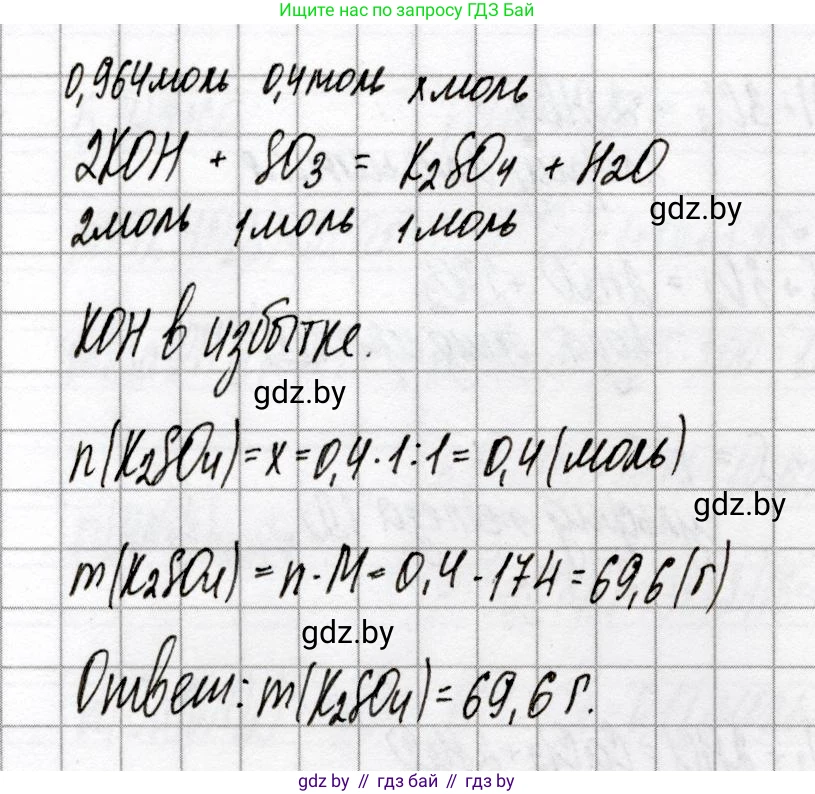 Ищите нас по запросу ГДЗ Бай
0,964моль 0,4моль x моль
2KOH + SO3 = K2SO4 + H2O
gdz.by
2моль 1моль 1моль
KOH в избытке.
gdz.by
n(K2SO4)=x=0,4·1:1=0,4(моль)
gdz.by
m(K2SO4)=n·M=0,4·174=69,6(г)
gdz.by
Ответ: m(K2SO4)=69,6г.
gdz.by // гдз бай // gdz.by